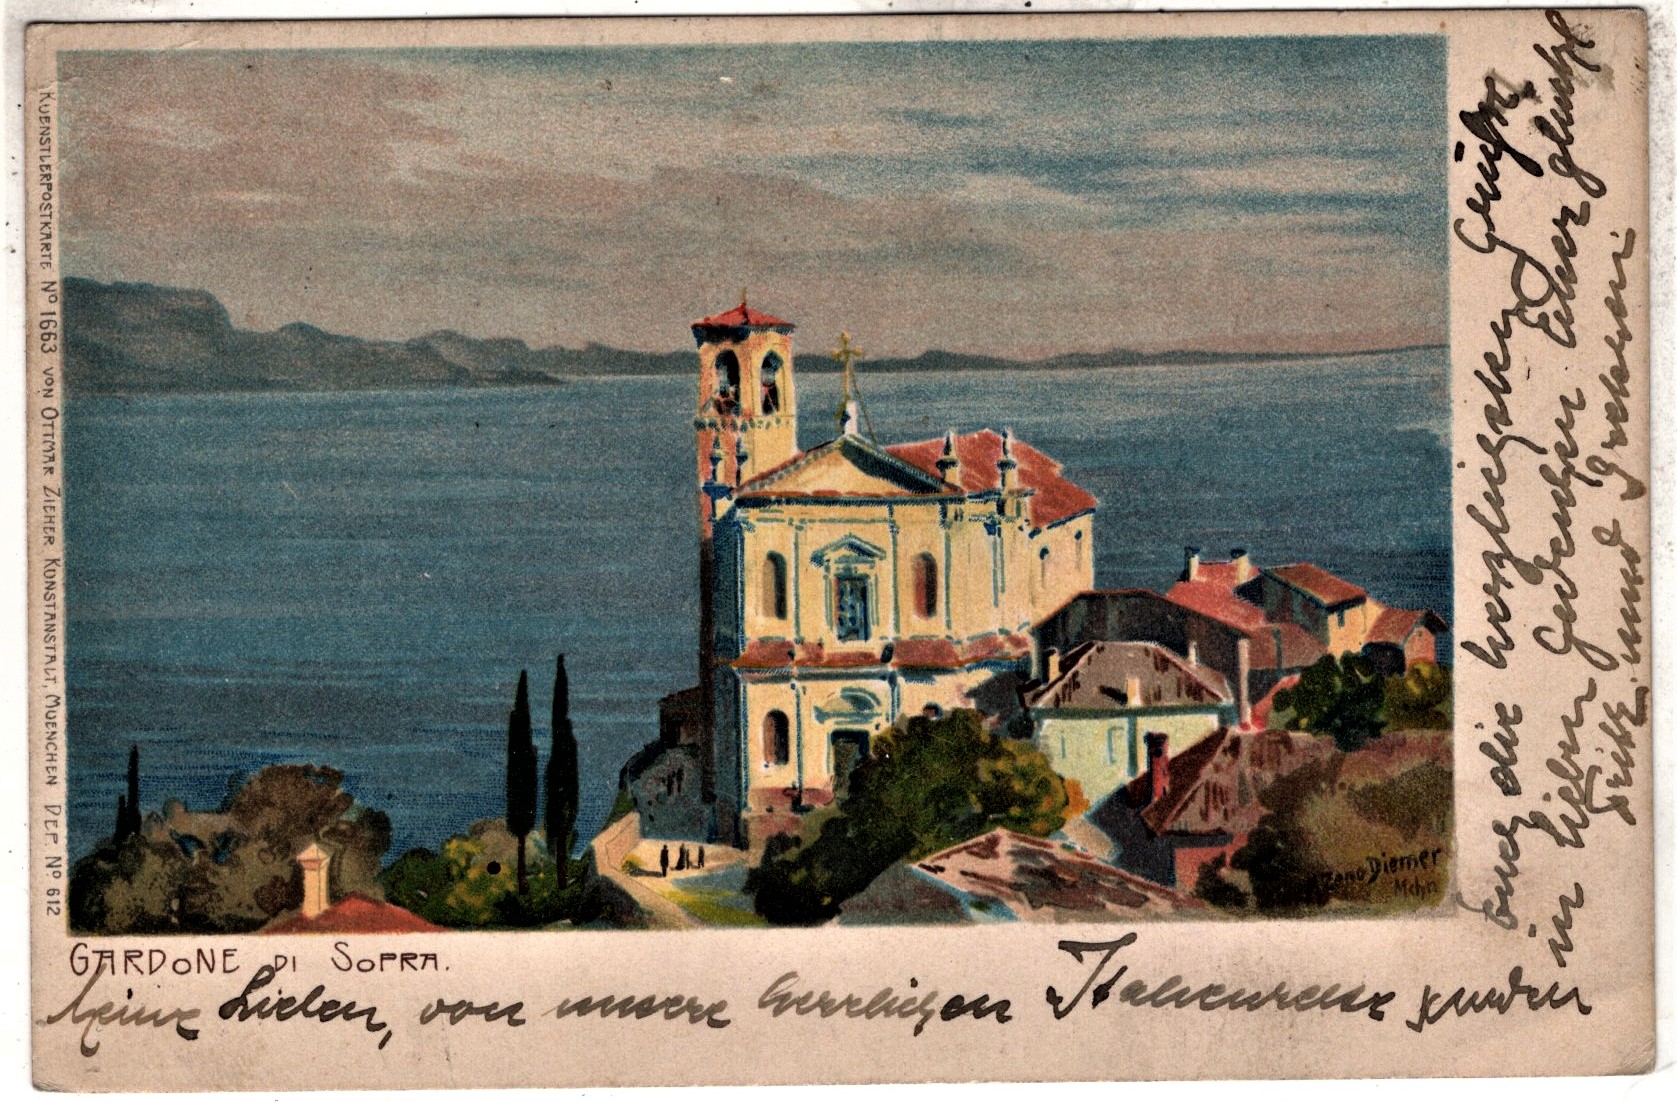 KUENSTLERPOSTKARTE Nº 1663 VON OTTMAR ZIEHER KUNSTANSTALT, MUENCHEN DEP. Nº 612
Zeno Diemer
Mchn
GARDONE DI SOPRA.
Meine Lieben, von unsere herrlichen Italienreise senden
Euch die herzlichsten Grüsse.
in lieben Gedenken Eurer glückl.
und Gretchen